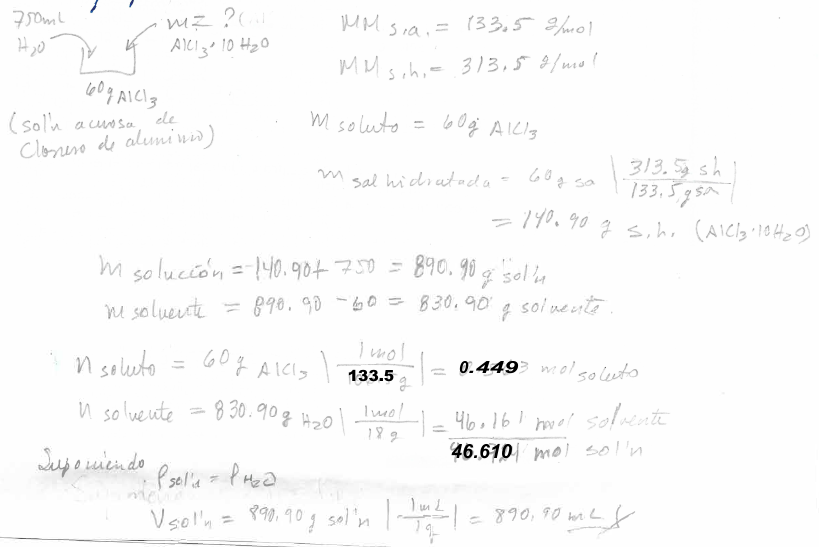 750mL
H2O
m = ?
AlCl3·10 H2O
60g AlCl3
(sol'n acuosa de
Cloruro de aluminio)
MM s.a. = 133.5 g/mol
MM s.h. = 313.5 g/mol
m soluto = 60g AlCl3
m sal hidratada = 60 g sa | 313.5g sh / 133.5 g sa |
= 140.90 g s.h. (AlCl3·10H2O)
m solución = 140.90 + 750 = 890.90 g sol'n
m solvente = 890.90 - 60 = 830.90 g solvente.
n soluto = 60 g AlCl3 | 1 mol / 133.5 g | = 0.449 mol soluto
n solvente = 830.90 g H2O | 1 mol / 18 g | = 46.161 mol solvente
46.610 mol sol'n
Suponiendo
ρ sol'n = ρ H2O
V sol'n = 890.90 g sol'n | 1 mL / 1 g | = 890.90 mL